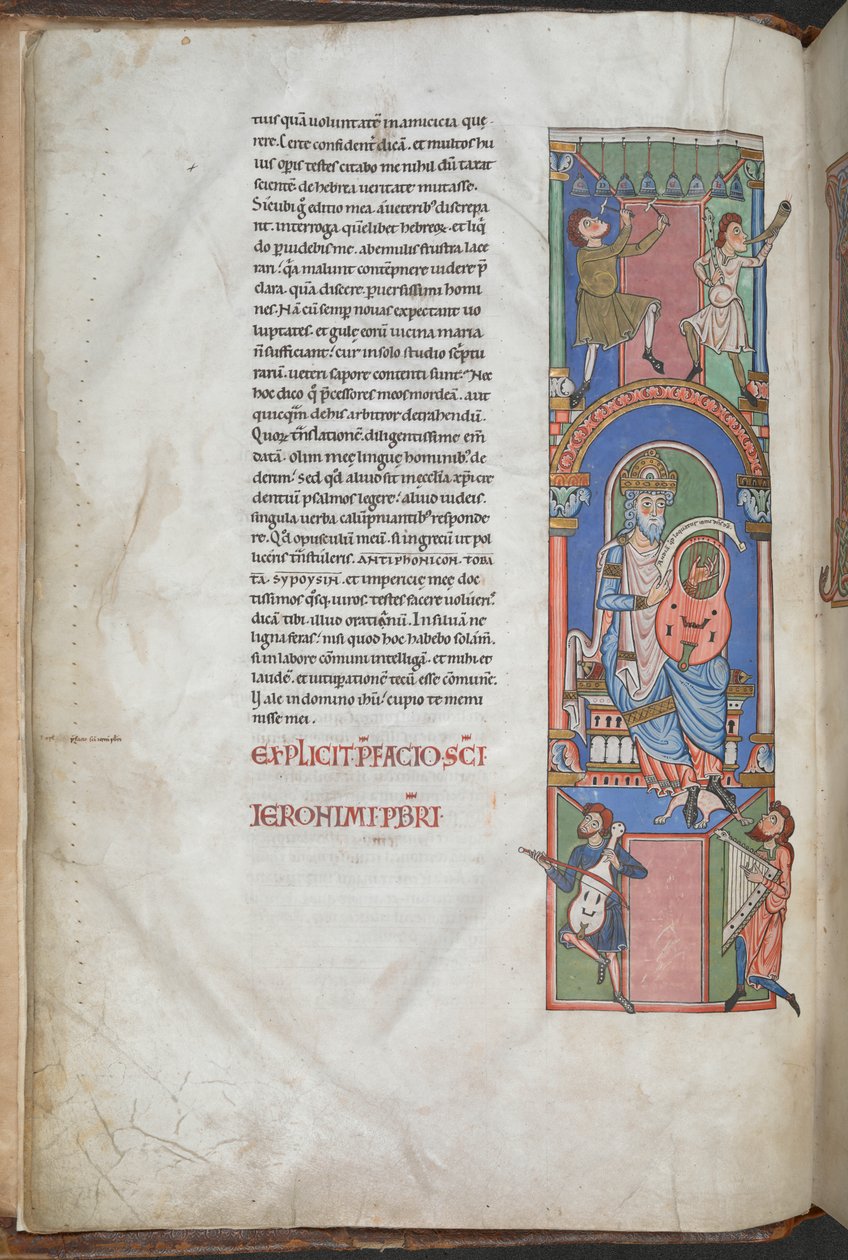 tiuſ quã uoluntatẽ in amicicia quę
rere. Certe confident̃ dicã. et multoſ hu
iuſ op̃iſ teſteſ citabo me nihil dũ taxat
ſcientẽ de hebrea ueritate mutaſſe.
Sicubi g̊ editio mea. a ueteribꝰ diſcrepa
nt. interroga quẽlibet hebreoꝝ. et liq̇
do ꝑuidebiſ me. ab emuliſ fruſtra lace
rari. q̃a malunt contẽpnere uidere p̃
clara. quã diſcere. ꝑuerſiſſimi homi
neſ. Nã cũ ſemꝑ nouaſ expectant uo
luptateſ. et gulę eorũ uicina maria
ñ ſufficiant! cur in ſolo ſtudio ſc̃ptu
rarũ. ueteri ſapore contenti ſunt? Nec
hoc dico q̊ p̃ceſſoreſ meoſ mordeã. aut
quicq̃m de hiſ arbitror detrahendũ.
Quoꝝ tñſlationẽ. diligentiſſime em̃
datã. olim meę linguę hominibꝰ de
derim! ſed qd̓ aliud ſit in ęccl̃ia xp̃i cre
dentiũ pſalmoſ legere! aliud iudeiſ.
ſingula uerba calũpniantibꝰ reſponde
re. Qd̓ opuſculũ meũ. ſi in grecũ ut pol
liceriſ tñſtuleriſ. ANTIPHONICON. TOBA
TA. SYPOYSIN. et impericię meę doc
tiſſimoſ qͦſq. uiroſ. teſteſ facere uolueri!
dicã tibi. illud oratianũ. In ſiluam ne
ligna feraſ! niſi quod hoc habebo ſolam̃.
ſi in labore cõmuni intelligã. et mihi et
laudẽ. et uituꝑationẽ tecũ eſſe cõmunẽ.
Vale in domino ihũ! cupio te memi
niſſe mei.
EXPLICIT. P̃FACIO. SC̃I
IERONIMI. PB̃RI.